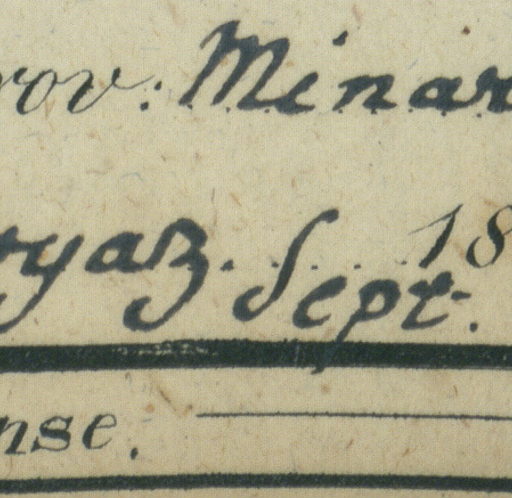 rov: Minar
ryaz. Sept. 18
nse.